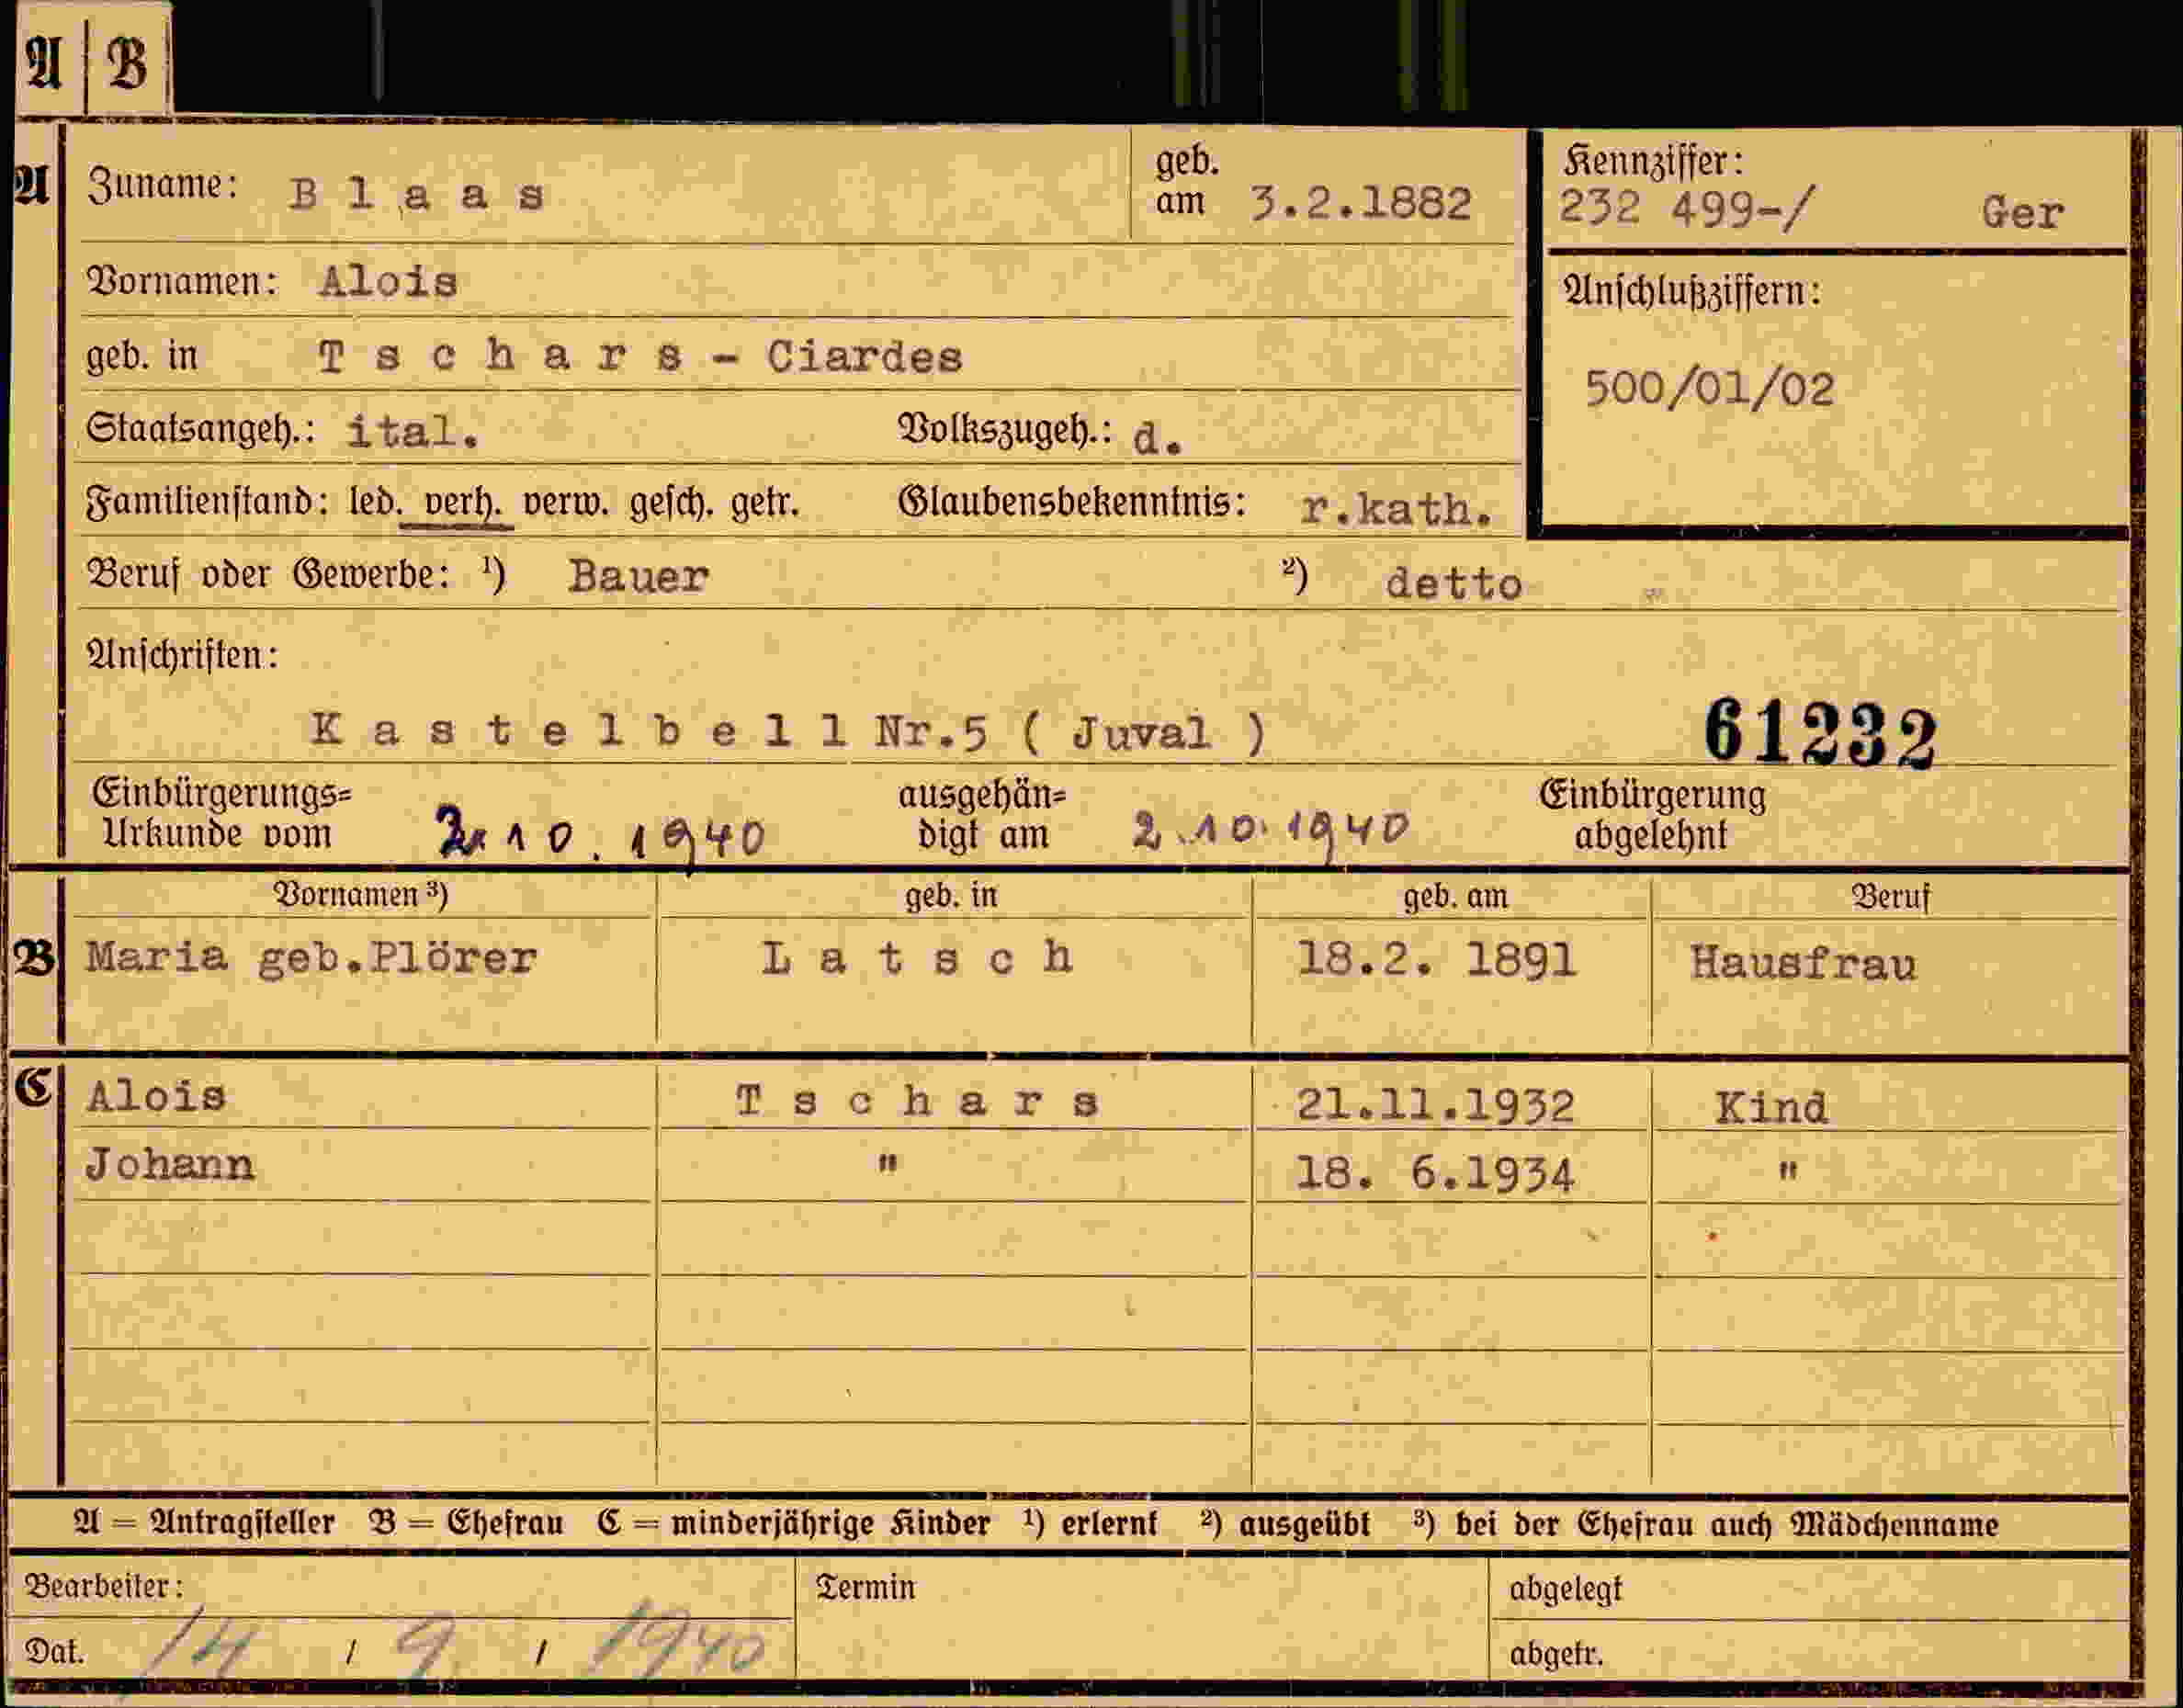 A B
A Zuname: B l a a s geb. am 3.2.1882 Kennziffer: 232 499-/ Ger
Vornamen: Alois Anschlußziffern:
geb. in T s c h a r s - Ciardes 500/01/02
Staatsangeh.: ital. Volkszugeh.: d.
Familienstand: led. verh. verw. gesch. getr. Glaubensbekenntnis: r.kath.
Beruf oder Gewerbe: ¹) Bauer ²) detto
Anschriften:
K a s t e l b e l l Nr.5 ( Juval ) 61232
Einbürgerungs= ausgehän= Einbürgerung
Urkunde vom 2. 10. 1940 digt am 2.10.1940 abgelehnt
Vornamen ³) geb. in geb. am Beruf
B Maria geb.Plörer L a t s c h 18.2. 1891 Hausfrau
C Alois T s c h a r s 21.11.1932 Kind
Johann " 18. 6.1934 "
A = Antragsteller B = Ehefrau C = minderjährige Kinder ¹) erlernt ²) ausgeübt ³) bei der Ehefrau auch Mädchenname
Bearbeiter: Termin abgelegt
Dat. 14 / 9 / 1940 abgetr.